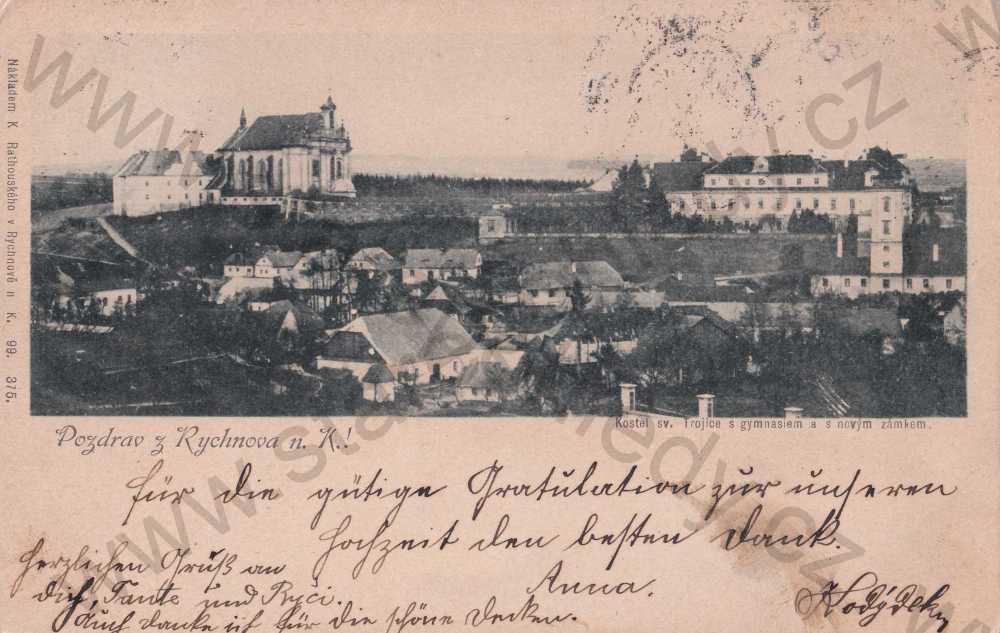 Nákladem K Rathouského v Rychnově n K. 99. 375.
Kostel sv. Trojice s gymnasiem a s novým zámkem.
Pozdrav z Rychnova n. K.!
für die gütige Gratulation zur unseren
Hochzeit den besten Dank.
Anna.
Herzlichen Gruß an
dich, Tante und
Auch danke ich für die schöne Decken.